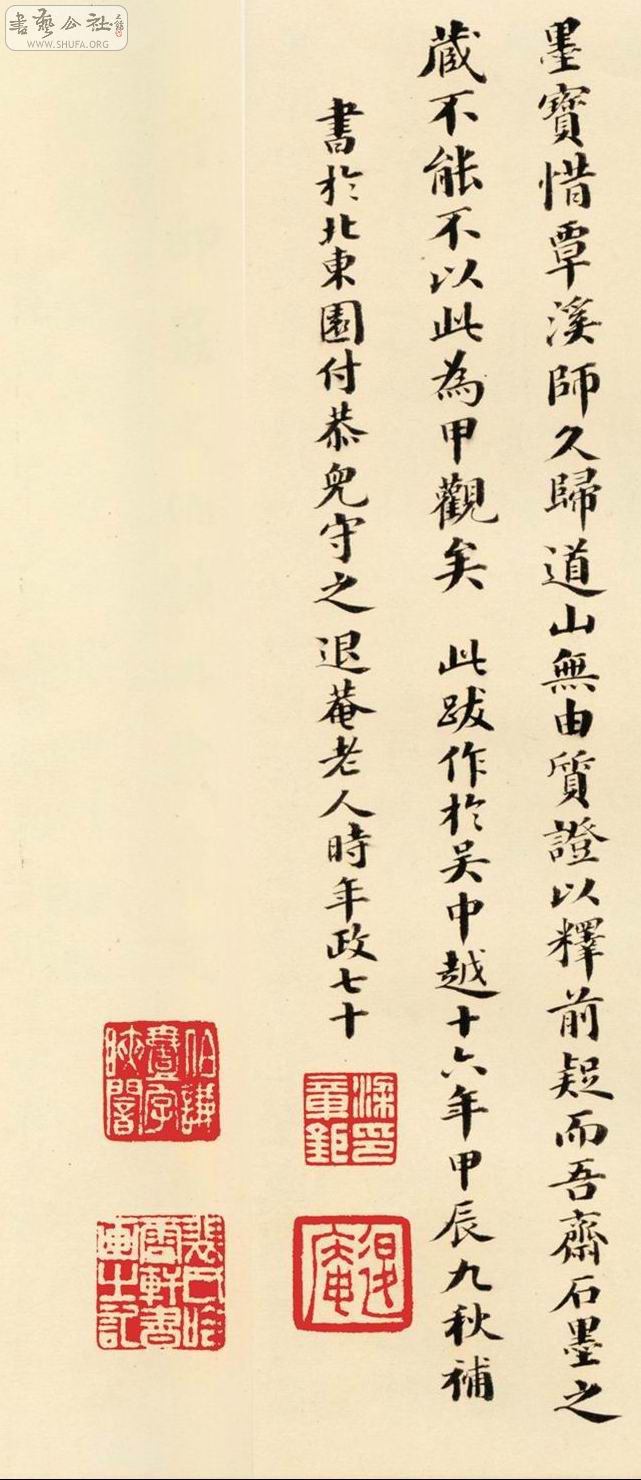 書藝公社
WWW.SHUFA.ORG
墨寶惜覃溪師久歸道山無由質證以釋前疑而吾齋石墨之
藏不能不以此為甲觀矣 此跋作於吳中越十六年甲辰九秋補
書於北東園付恭兒守之退菴老人時年政七十
梁章鉅印
退庵